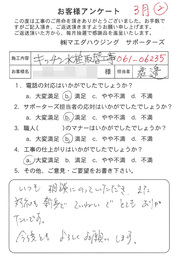 お客様アンケート
3月②
この度は工事のご用命を頂きましてありがとうございます。お手数で
すがご記入頂き、ご返送頂きますようお願い申し上げます。
返送頂いた方から、毎月抽選で感謝品をお送り致します。
㈱マエダハウジング サポーターズ
施工内容 キッチン水栓取替工事 061-06235
お名前 様 担当者 渡邊
1．電話の対応はいかがでしたでしょうか？
a．大変満足 b．満足 c．やや不満 d．不満
2．サポーターズ担当者の応対はいかがでしたでしょうか？
a．大変満足 b．満足 c．やや不満 d．不満
3．職人( )のマナーはいかがでしたでしょうか？
a．大変満足 b．満足 c．やや不満 d．不満
4．工事の仕上がりはいかがでしたでしょうか？
a．大変満足 b．満足 c．やや不満 d．不満
5．その他、ご意見・ご要望をお書き下さい。
いつも 相談にのっていただき、また
対応も 丁寧で ていねいで とても ありが
たいです。
今後とも よろしく お願いします。